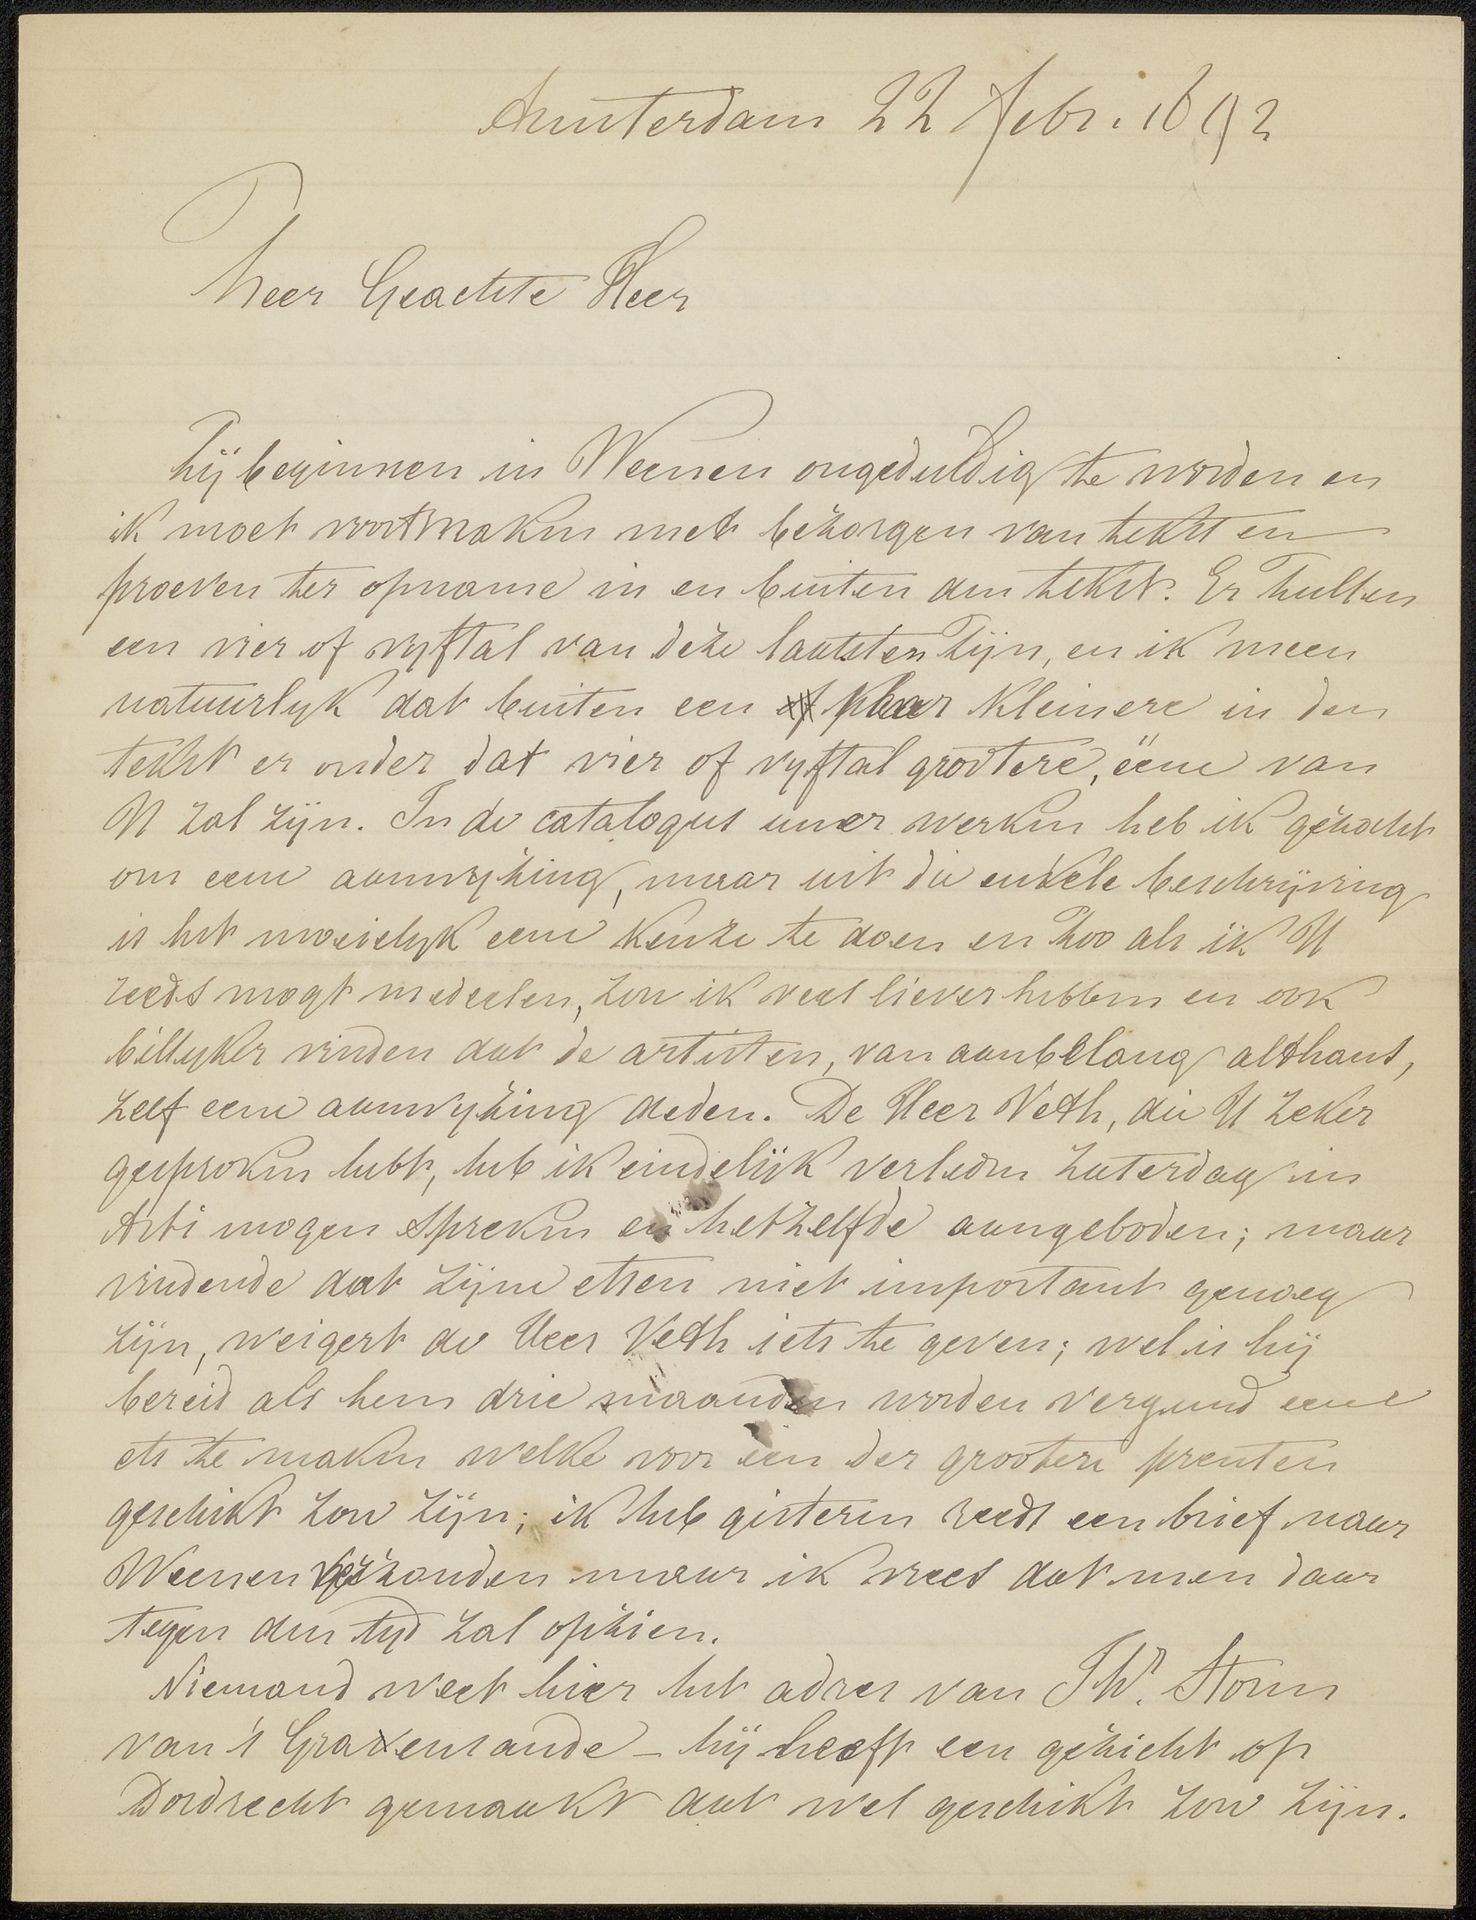 Amsterdam 22 Febr. 1892
Zeer Geachte Heer
Zij beginnen in Weenen ongeduldig te worden en
ik moet voortmaken met bezorgen van tekst en
proeven ter opname in en buiten den tekst. Er zullen
een vier of vyftal van deze laatsten zijn, en ik meen
natuurlyk dat buiten een paar kleinere in den
tekst er onder dat vier of vyftal grootere, ééne van
U zal zijn. In de catalogus uwer werken heb ik gezocht
om eene aanwyzing, maar uit die enkele beschrijving
is het moeielyk eene keuze te doen en zoo als ik U
reeds mogt mededeelen, zou ik veel liever hebben en ook
billyker vinden dat de artisten, van aanbelang althans,
zelf eene aanwyzing deden. De Heer Veth, die U zeker
gesproken hebt, heb ik eindelijk verleden Zaterdag in
Arti mogen spreken en hetzelfde aangeboden; maar
vindende dat zijne etsen niet important genoeg
zijn, weigert de Heer Veth iets te geven; wel is hij
bereid als hem drie maanden worden vergund eene
ets te maken welke voor een der grootere prenten
geschikt zou zijn; ik heb gisteren reeds een brief naar
Weenen verzonden maar ik vrees dat men daar
tegen den tyd zal opzien.
Niemand weet hier het adres van Th. Storm
van 's Gravensande – hij heeft een gezicht op
Dordrecht gemaakt dat wel geschikt zou zijn.